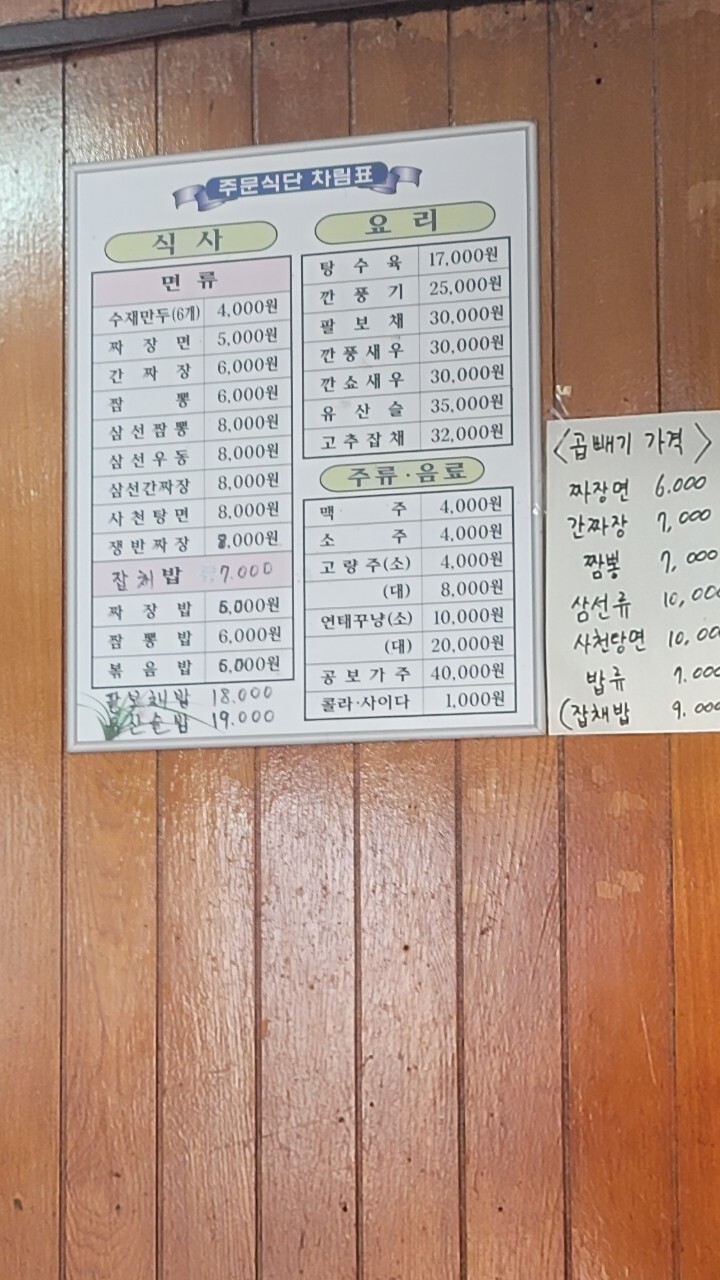 주문식단 차림표
식 사
면 류
수재만두(6개) 4,000원
짜 장 면 5,000원
간 짜 장 6,000원
짬 뽕 6,000원
삼선짬뽕 8,000원
삼선우동 8,000원
삼선간짜장 8,000원
사천탕면 8,000원
쟁반짜장 8,000원
잡채밥 7.000
짜 장 밥 6,000원
짬 뽕 밥 6,000원
볶 음 밥 6,000원
팔보채밥 18.000
유산슬밥 19.000
요 리
탕 수 육 17,000원
깐 풍 기 25,000원
팔 보 채 30,000원
깐풍새우 30,000원
깐쇼새우 30,000원
유 산 슬 35,000원
고추잡채 32,000원
주류·음료
맥 주 4,000원
소 주 4,000원
고량주(소) 4,000원
(대) 8,000원
연태꾸냥(소) 10,000원
(대) 20,000원
공보가주 40,000원
콜라·사이다 1,000원
<곱빼기 가격>
짜장면 6.000
간짜장 7,000
짬뽕 7,000
삼선류 10,000
사천탕면 10,000
밥류 7.000
(잡채밥 9.000